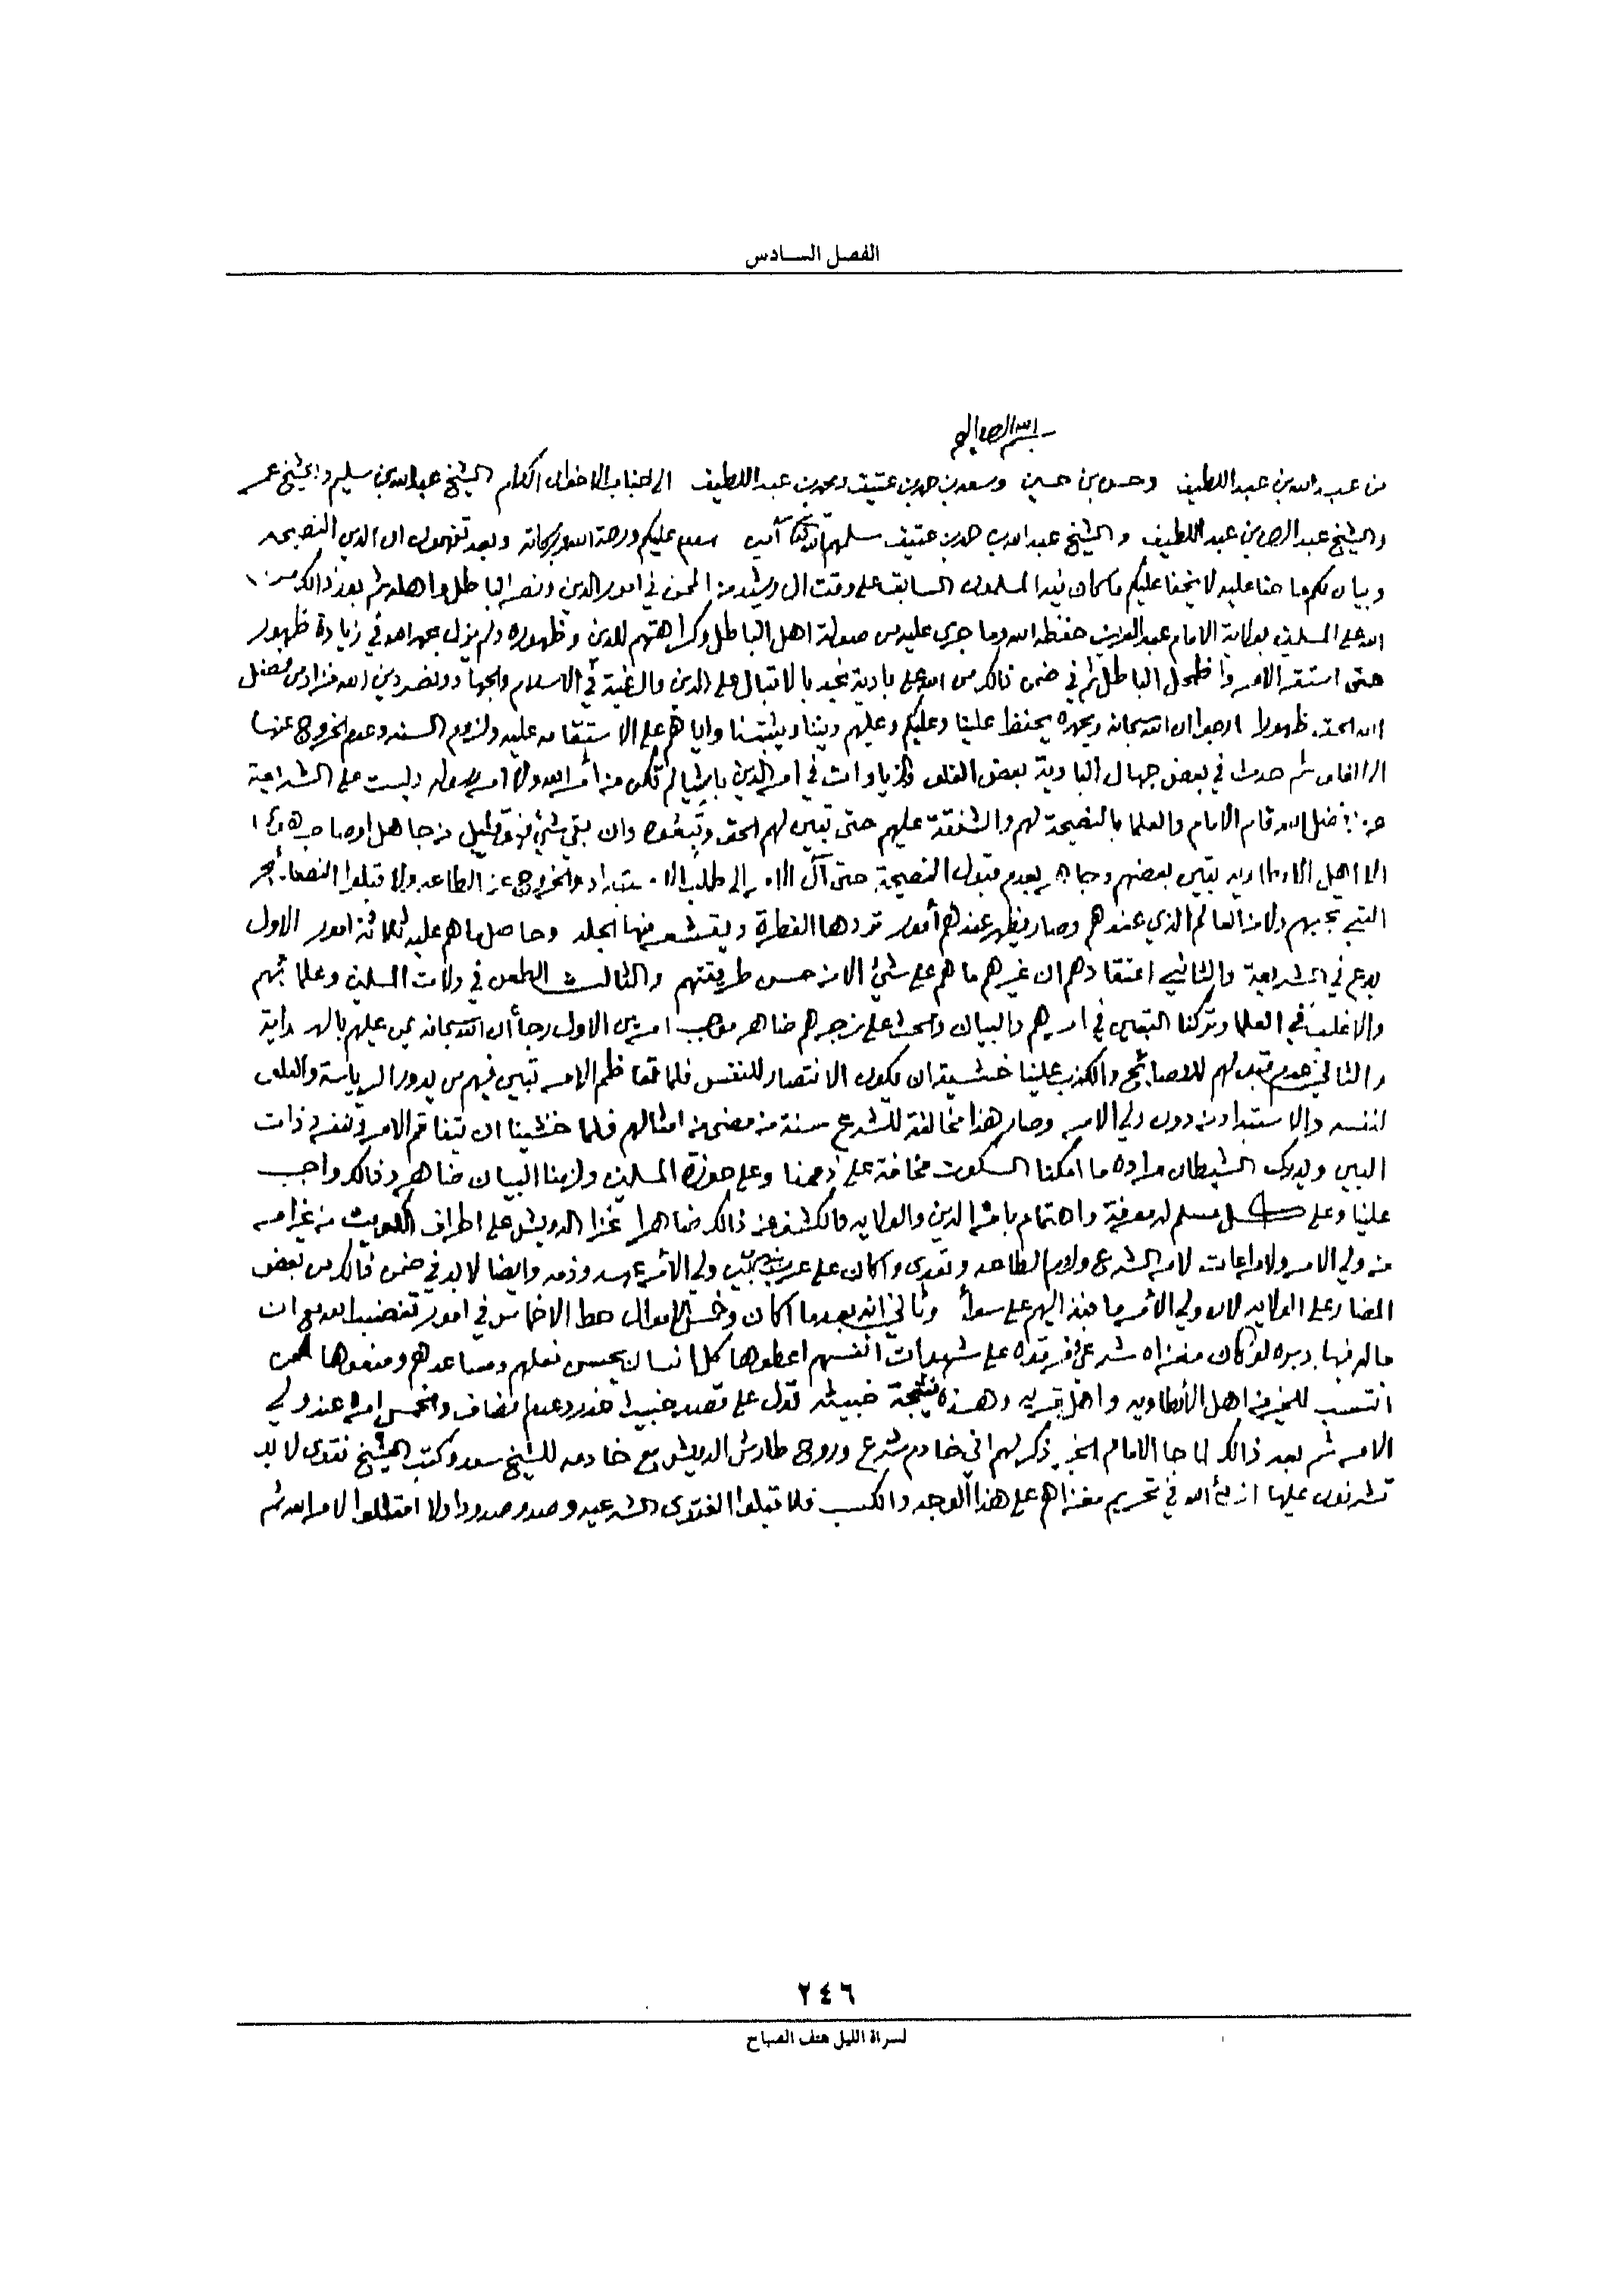 الفصل السادس
بسم الله الرحمن الرحيم
من عبد الله بن عبد اللطيف وحسن بن حسين وسعد بن حمد بن عتيق ومحمد بن عبد اللطيف الى جناب الاخوان الكرام الشيخ عبد الله بن سليم والشيخ عمر
والشيخ عبد الرحمن بن عبد اللطيف والشيخ عبد الله بن حمد بن عتيق سلمهم الله تعالى آمين سلام عليكم ورحمة الله وبركاته وبعد تفهمون ان الدين النصيحه
وبيان لكم ما حنا عليه لا يخفا عليكم ما كان فيه المسلمون السابق على وقت ال رشيد من المحن في امور الدين ونصر الباطل واهله ثم بعد ذالك من
الله على المسلمين بولاية الامام عبد العزيز حفظه الله وما جرى عليه من صولة اهل الباطل وكراهتهم للدين وظهوره ولم يزل بحمد الله في زيادة ظهور
حتى استقر الامر واظمحل الباطل ثم في ضمن ذالك من الله على بادية نجد بالاقبال على الدين والرغبة في الاسلام والجهاد ونصر دين الله فزاد من فضل
الله الحق ظهورا ارجوا ان الله سبحانه وبحمده يحفظ علينا وعليكم وعليهم ديننا ويثبتنا واياهم على الاستقامه عليه ولزوم السنه وعدم الخروج عنها
ثم حدث في بعض جهال البادية بعض الغلو والزيادات في امر الدين باشيا لم تكن من أمر الله ولا امر رسوله وليست على الشريعة
فضل الله قام الامام والعلما بالنصيحة لهم والشفقة عليهم حتى تبين لهم الحق وتبعوه وان بقي شيء فهو قليل من جاهل او صاحب
الا اهل الارطاويه تبين بعضهم وجاهر بعدم قبول النصيحة حتى آل الامر الى طلب الاستبداد والخروج عن الطاعه ولا قبلوا النصايح
التي تجيهم ولا من العالم الذي عندهم وصار يظهر عندهم أمور تردها الفطرة ويقشعر منها الجلد وحاصل ما هم عليه ثلاثة امور الاول
بدع في الشريعة والثاني اعتقادهم ان غيرهم ما هم على شئ الا من حسن طريقتهم والثالث الطعن في ولات المسلمين وعلمائهم
والاغلب في العلما وتركنا التبيين في امرهم والبيان والحث على زجرهم ضاهر موجب امرين الاول رجأ أن الله سبحانه يمن عليهم بالهداية
والثاني عدم قبولهم للنصايح والكذب علينا خشية ان يكون الانتصار للنفس فلما تعاظم الامر تبين فيهم من يدور الرياسة والعلو
لنفسه والاستبداد به دون ولي الامر وصار هذا مخالفة للشرع سنة من مضى من امثالهم فلما خشينا ان يتفاقم الامر ذات
البين ويدرك الشيطان مراده ما امكنا السكوت مخافة على ذممنا وعلى حوزة المسلمين ولزمنا البيان ضاهر وذالك واجب
علينا وعلى كل مسلم له معرفة واهتمام بامر الدين والولايه فانكشف من ذالك ضاهرا غزا الدويش على اطراف الكويت من غير امر
من ولي الامر ولا مراعات لامر الشرع ولزوم الطاعه وتعدى وكان على عرب بينهم وبين ولي الأمر عهد وذمه وايضا لابد في ضمن ذالك من بعض
المضار على الولايه لان ولي الأمر ما نبذ اليهم على سوأ وثاني انه بعد ما اكان وخمس الاموال حط الاخماس في امور تغضب الله مع ان
ماله فيها دبره لو كان مغزاه شرعي فرقوه على شهوات انفسهم اعطوها كل انسان يحسن فعلهم ومساعدهم ومنعوها عن
انتسب للخير من اهل الأرطاويه واهل قريه وهذه نتيجة خبيثه تدل على قصد خبيث وعدم انصاف والخمس امره عند ولي
الامر ثم بعد ذالك لما جا الامام الخبر ذكر لهم اني خادم شرع وروح طارش الدويش مع خادمه للشيخ سعد وكتب الشيخ فتوى لا بد
تشرفون عليها ان شأ الله في تحريم مغزاهم على هذا الوجه والكسب فلا قبلوا الفتوى الشرعيه وصدو صدودا ولا امتثلوا لامر الله ثم
٢٤٦
لسراة الليل هتف الصباح